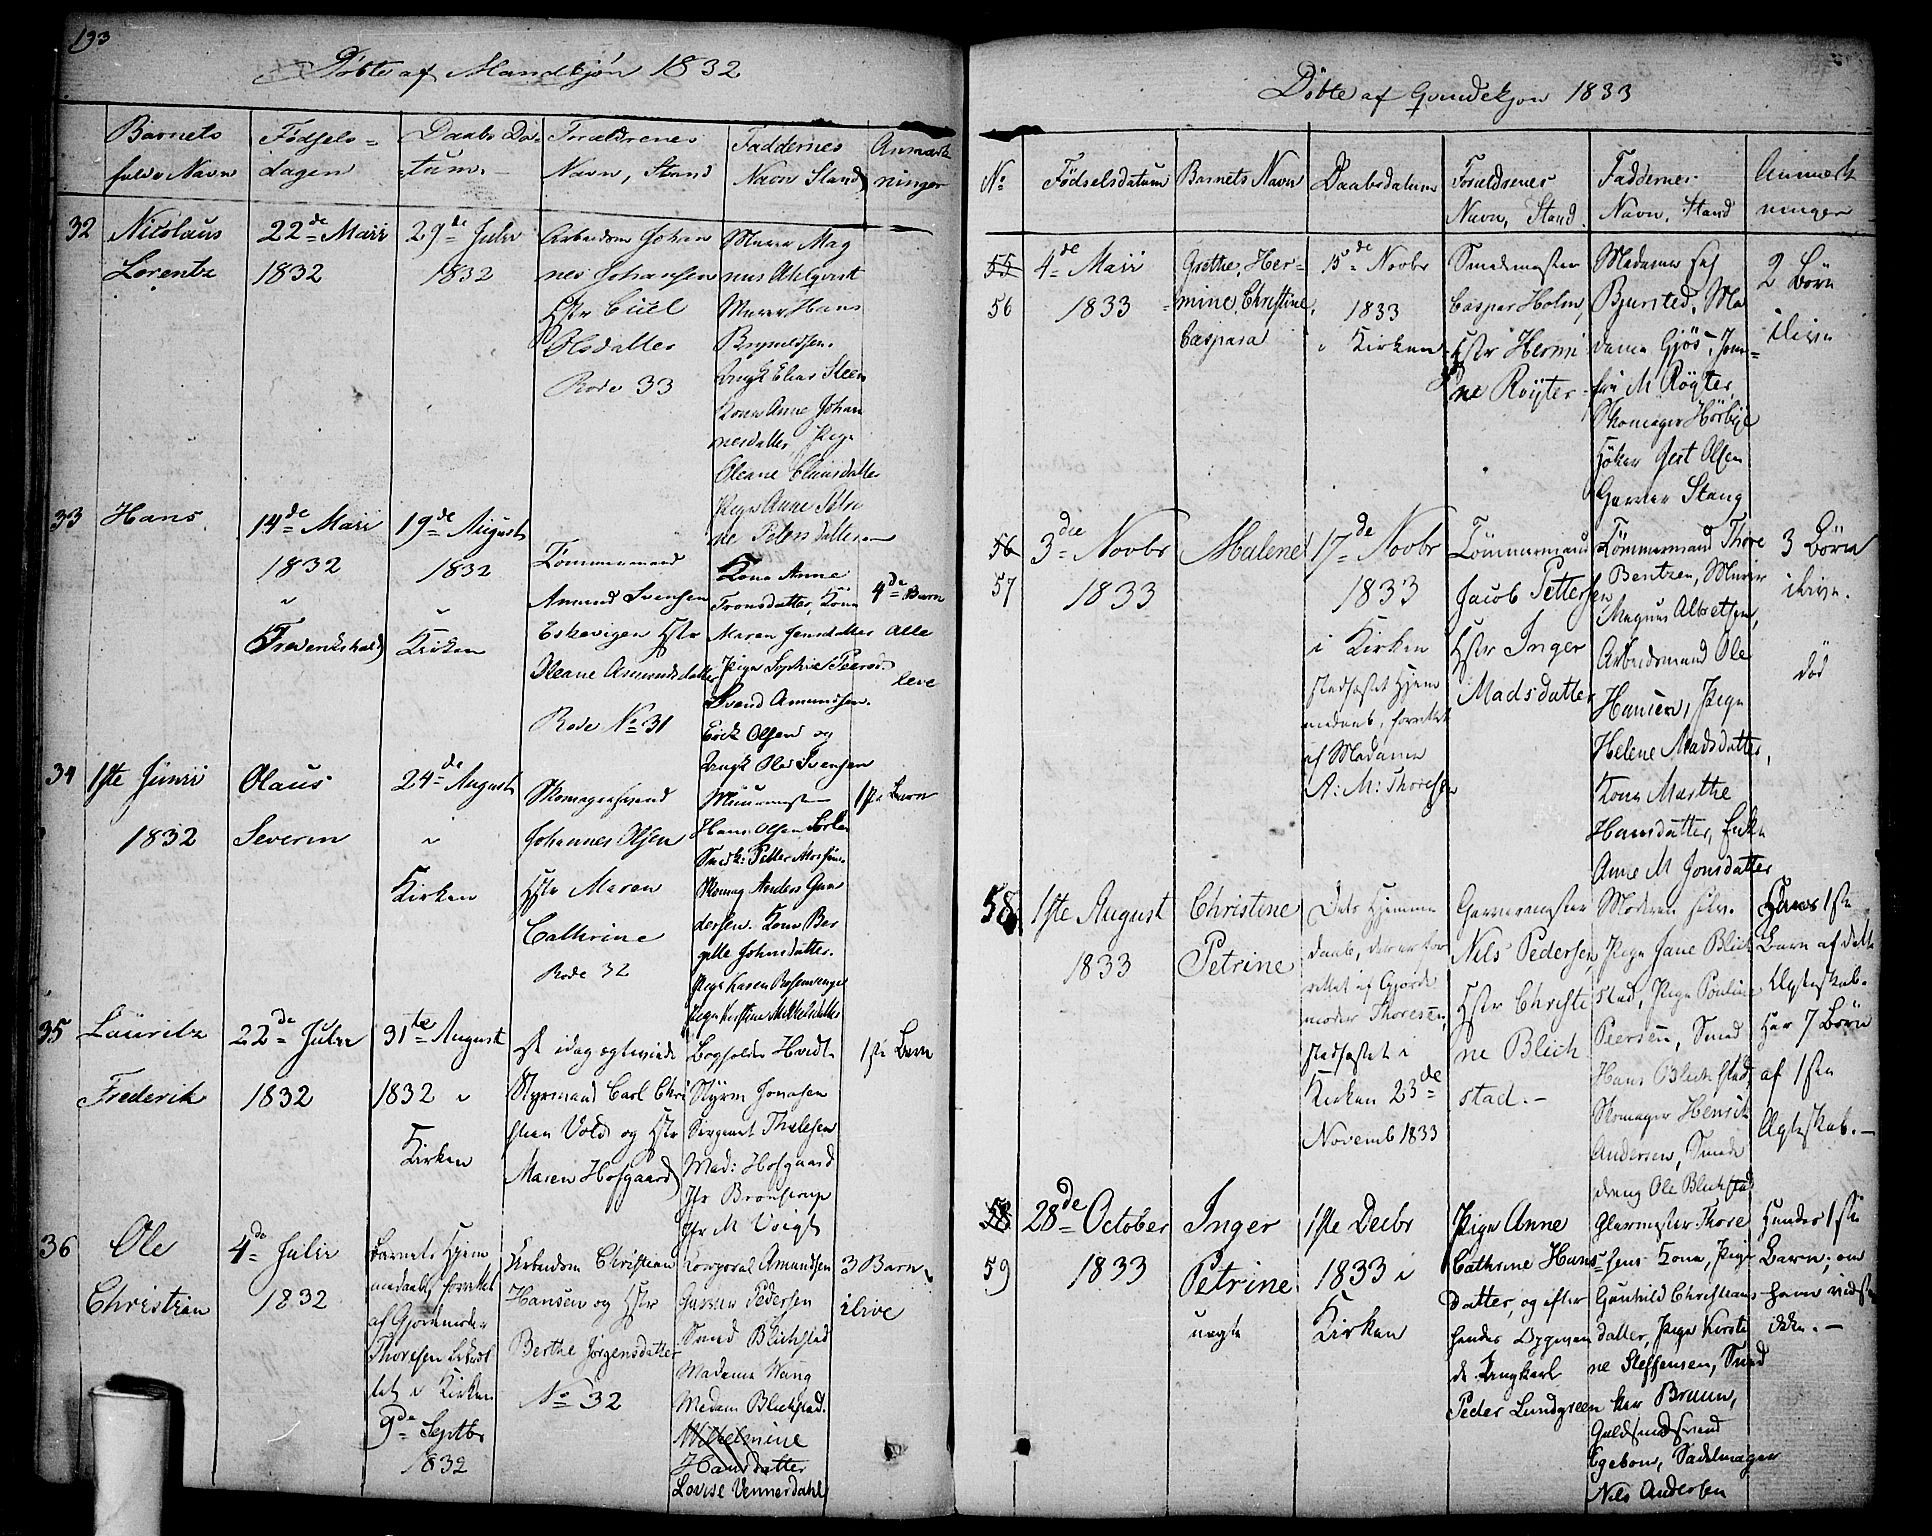 193
Döbte af Mandkjön 1832
Barnets
fulde Navn
Fødsels-
dagen
Daabs Da-
tum.
Forældrenes
Navn, Stand
Faddernes
Navn Stand
Anmærk
ninger
32
Nicolaus
Lorentz
22de Maii
1832
29de Julii
1832
Arbeidsm Johan
nes Johansen
Hstr
Olsdatter
Rode 33
Murer Mag
nus Ahlqvist
Murer Hans
Brynildsen.
Ungk Elias Steen
Kone Anne Johan
nesdatter, Pige
Oleane Clausdatter
Pige Anne
ne Petersdatter
33
Hans.
14de Maii
1832
i
Frederikshald
19de August
1832
i
Kirken
Tömmermand
Amund Svensen
Eskevigen Hstr
Oleane Amundsdatter
Rode No 31
Kone Anne
Tronsdatter, Kone
Maren Jensdatter
Pige Sophie Peersd.
Svend Amundsen.
Erik Olsen og
Ungk Ole Svensen
4de Barn
Alle
leve
34
1ste Junii
1832
Olaus
Severin
24de August
i
Kirken
Skomagersvend
Johannes Olsen
Hstr Maren
Cathrine
Rode 32
Muurmester
Hans Olsen
Smedk: Petter
Skomag Anders Gun
dersen. Kone Ber
gitte Johnsdatter.
Pige Karen Rosenvinge
Pige Kirstine Mikkelsdatter
1ste Barn
35
Lauritz
Frederik
22de Julii
1832
31te August
1832 i
Kirken
idag egteviede
Styrmand Carl Chri
stian Vold og Hstr
Maren Hofgaard
Bogholder Hvidt
Styrm Jonasen
Sergeant Thalesen
Mad: Hofgaard
Jfr
Jfr M Voigt
1ste Barn
36
Ole
Christian
4de Julii
1832
Barnets Hjem
medaab, forrettet
af Gjordmoder
Thoresen
tet i Kirken
9de Septbr
1832
Arbeidsm Christian
Hansen og Hstr
Berthe Jørgensdatter
No 32
Corporal Amundsen
Garver Pedersen
Smed Blichstad
Madame Wang
Madam Blichstad.
Wilhelmine
Hansdatter
Lovise Vennerdahl
3 Barn
ilive
Döbte af Qvindekjön 1833
No
Födselsdatum
Barnets Navn
Daabsdatum
Forældrenes
Navn, Stand
Faddernes
Navn, Stand
Anmærk
ninger
55
56
4de Maii
1833
Grethe, Her-
mine, Christine,
Caspara
15de Novbr
1833
i Kirken
Smedmester
Caspar Holm,
Hstr Hermi
ne Röyter
Madame
Bjursted, Ma
dame Gjös, Jom-
fru M Röyter,
Skomager Hörbye
Höker Jest Olsen
Garver Stang
2 Börn
ilive
56
57
3die Novbr
1833
Malene
17de Novbr
1833
i Kirken
stadfæstet Hjem
medaab, forrettet
af Madame
A: M: Thoresen
Tömmermand
Jacob Pettersen
Hstr Inger
Madsdatter
Tömmermand Thore
Bentzen, Murer
Magnus Albretsen,
Arbeidsmand Ole
Hansen, Pige
Helene Madsdatter,
Kone Marthe
Hansdatter, Enke
Anne M Jonsdatter
3 Börn
ilive.
död
58
1ste August
1833
Christine
Petrine
Dets Hjemme
daab, der er for
rettet af Gjorde
moder Thoresen,
stadfæstet i
Kirken 23de
Novemb 1833
Garvermester
Nils Pedersen,
Hstr Christi
ne Blich
stad.-
Moderen selv.
Pige Jane Blich
stad, Pige Pouline
Peersen, Smed
Hans Blichstad,
Skomager Henrik
Andersen, Smede
dreng Ole Blichstad
Hans 1ste
Barn af dette
Ægteskab.
Har 7 Börn
af 1ste
Ægteskab.-
58
59
28de October
1833
Inger
Petrine
uægte
1ste Decbr
1833 i
Kirken
Pige Anne
Cathrine Hans
datter, og efter
hendes Opgiven
de Ungkarl
Peder Lundgreen
Glarmester Thore
sens Kone, Pige
Gunhild Christians
datter, Pige Kirsti
ne Steffensen, Smed
ker Bruun,
Guldsmedsvend
Egebon, Sadelmager
Nils Andersen
Hendes 1ste
Barn; om
ham vidste
ikke.-